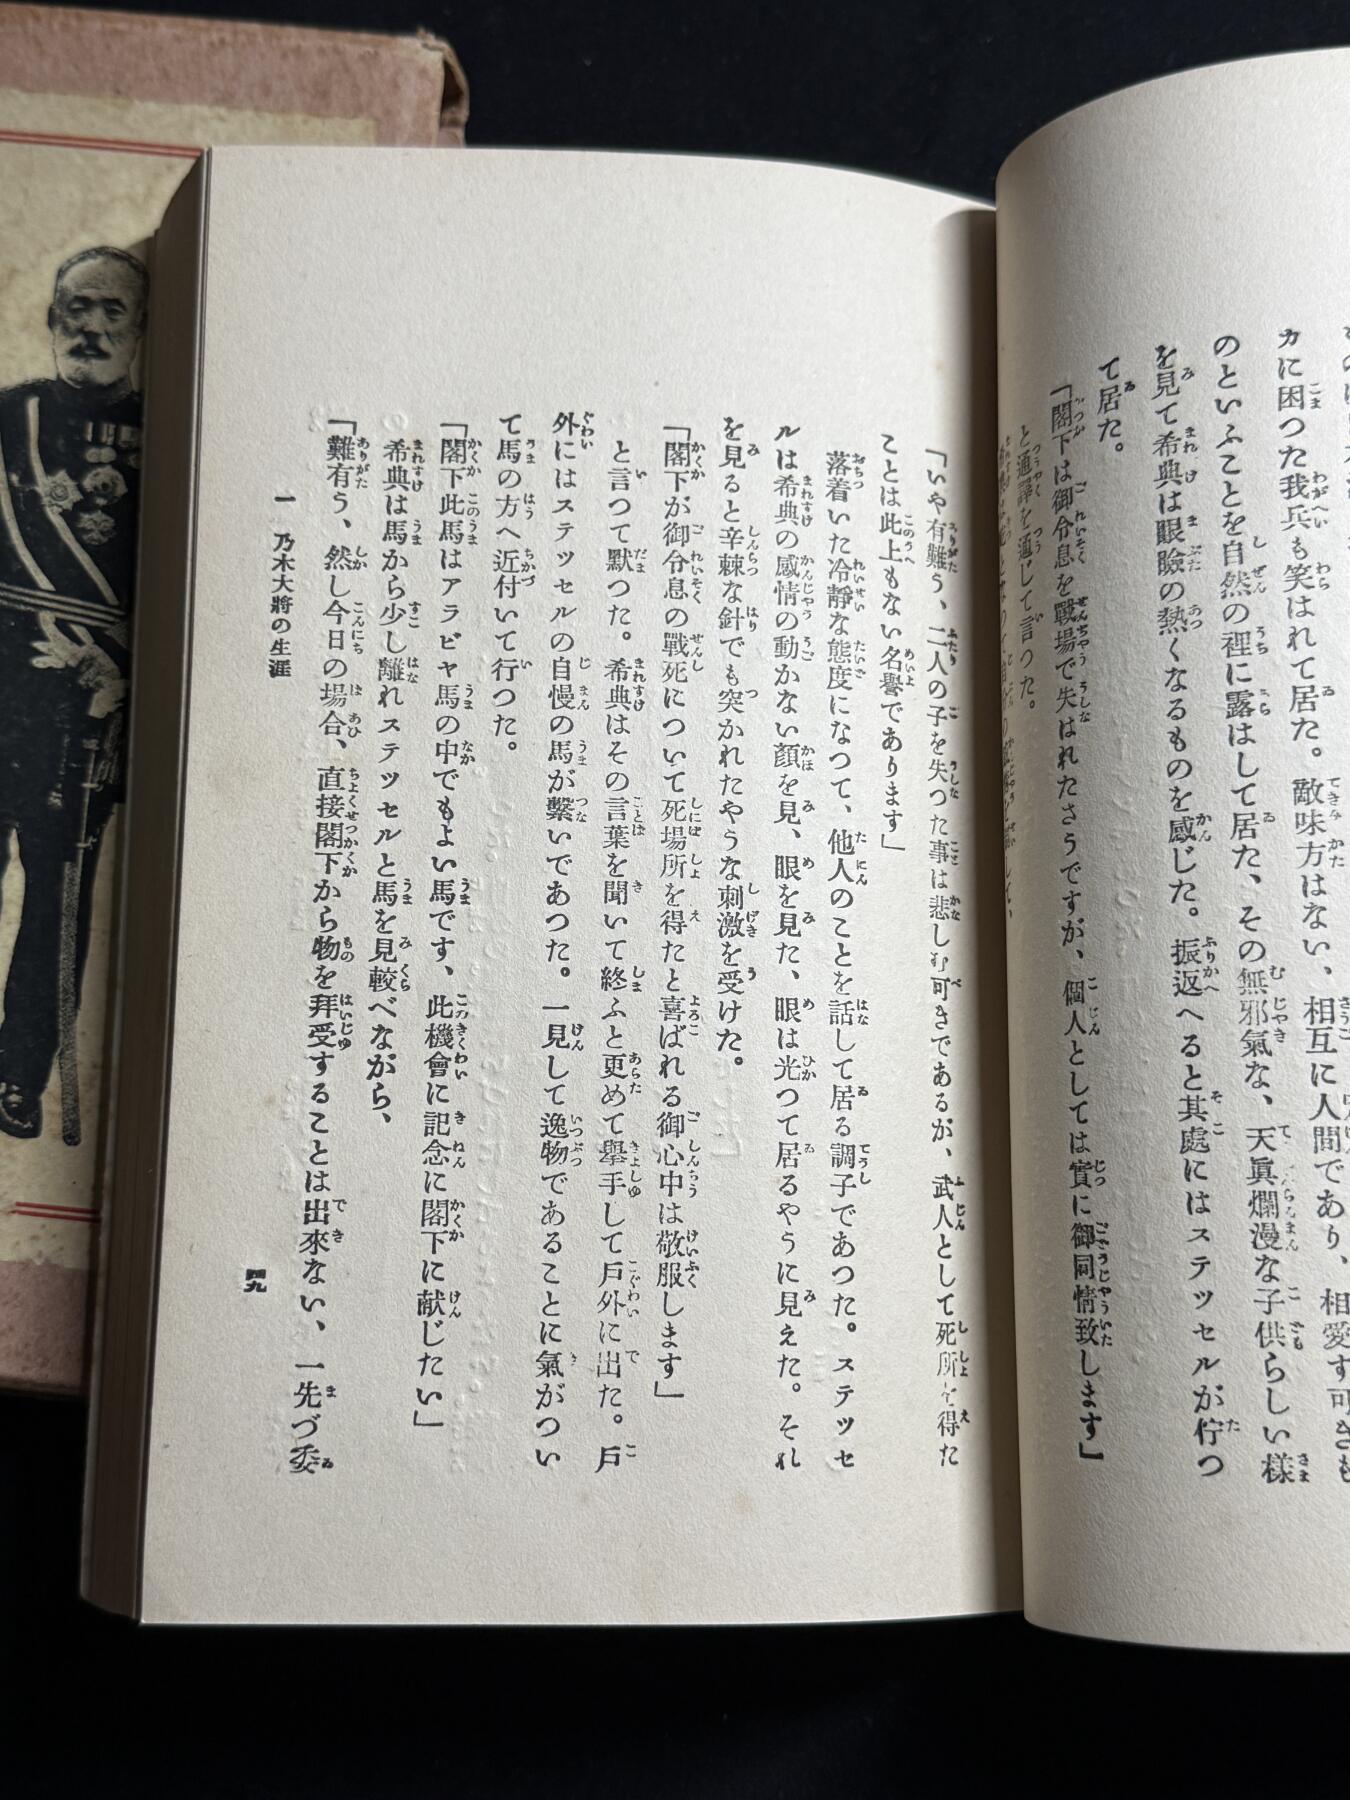 カに困つた我兵も笑はれて居た。敵味方はない、相互に人間であり、相愛す可きも
のといふことを自然の裡に露はして居た、その無邪氣な、天眞爛漫な子供らしい樣
を見て希典は眼瞼の熱くなるものを感じた。振返へると其處にはステッセルが佇つ
て居た。
「閣下は御令息を戰場で失はれたさうですが、個人としては實に御同情致します」
と通譯を通じて言つた。
「いや有難う、二人の子を失つた事は悲しむ可きであるが、武人として死所を得た
ことは此上もない名譽であります」
落着いた冷靜な態度になつて、他人のことを話して居る調子であつた。ステッセ
ルは希典の感情の動かない顔を見、眼を見た、眼は光つて居るやうに見えた。それ
を見ると辛棘な針でも突かれたやうな刺激を受けた。
「閣下が御令息の戰死について死場所を得たと喜ばれる御心中は敬服します」
と言つて默つた。希典はその言葉を聞いて終ふと更めて擧手して戶外に出た。戶
外にはステッセルの自慢の馬が繫いであつた。一見して逸物であることに氣がつい
て馬の方へ近付いて行つた。
「閣下此馬はアラビヤ馬の中でもよい馬です、此機會に記念に閣下に献じたい」
希典は馬から少し離れステッセルと馬を見較べながら、
「難有う、然し今日の場合、直接閣下から物を拜受することは出來ない、一先づ委
一 乃木大將の生涯
四九